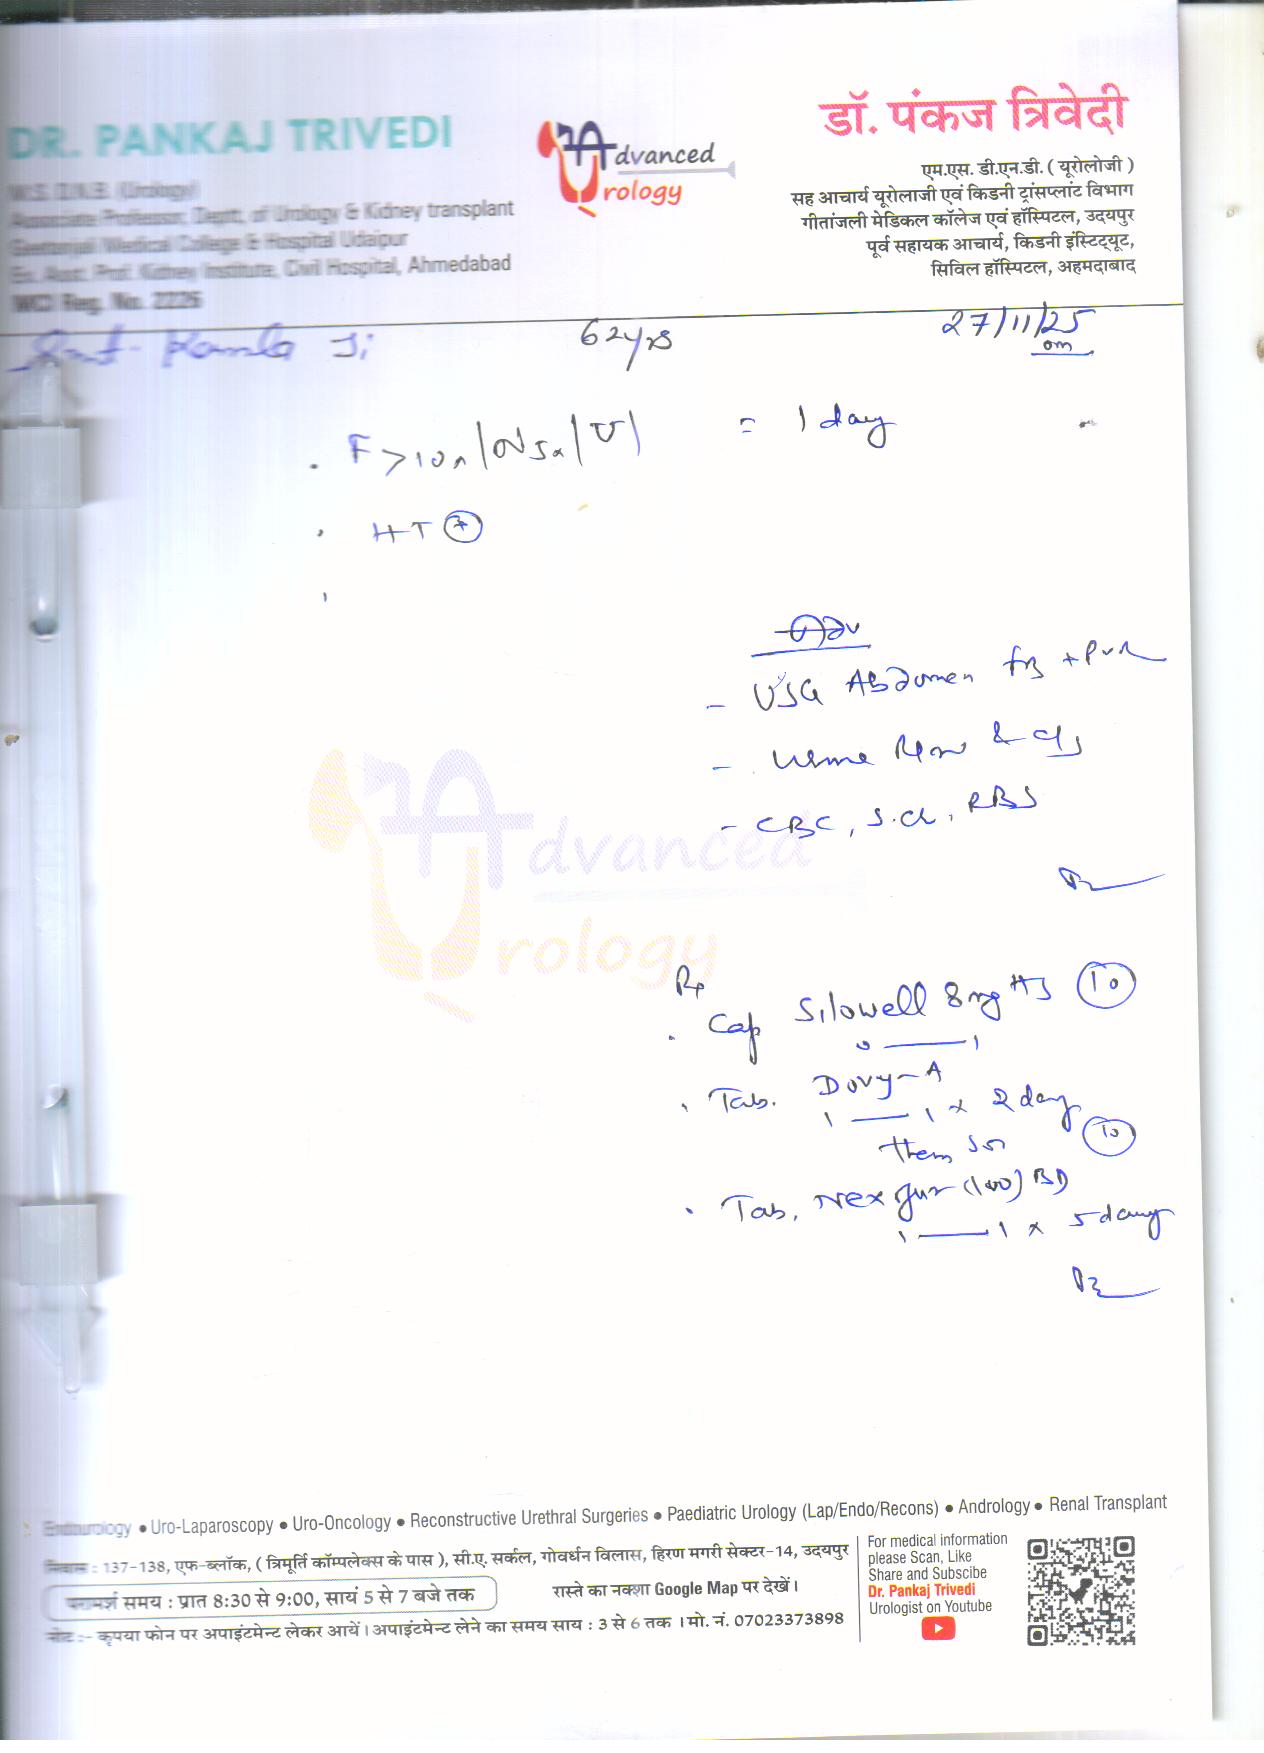 DR. PANKAJ TRIVEDI
M.S. D.N.B. (Urology)
Associate Professor, Deptt. of Urology & Kidney transplant
Geetanjali Medical College & Hospital Udaipur
Ex. Asst. Prof. Kidney Institute, Civil Hospital, Ahmedabad
MCI Reg. No. 2226
Advanced
Urology
डॉ. पंकज त्रिवेदी
एम.एस. डी.एन.डी. ( यूरोलोजी )
सह आचार्य यूरोलाजी एवं किडनी ट्रांसप्लांट विभाग
गीतांजली मेडिकल कॉलेज एवं हॉस्पिटल, उदयपुर
पूर्व सहायक आचार्य, किडनी इंस्टिट्यूट,
सिविल हॉस्पिटल, अहमदाबाद
Smt. Kamla Ji 62yrs 27/11/25
= 1 day
HT +
Adv
- USG Abdomen + PVR
- Urine & C/S
- CBC, S.Cr, RBS
Advanced
Urology
Rx
. Cap Silowell 8mg HS 10
0 — 1
. Tab. Dovy-A
1 — 1 x 2 day
then SOS 10
. Tab. (100) BD
1 — 1 x 5 day
Endourology • Uro-Laparoscopy • Uro-Oncology • Reconstructive Urethral Surgeries • Paediatric Urology (Lap/Endo/Recons) • Andrology • Renal Transplant
निवास : 137-138, एफ-ब्लॉक, ( त्रिमूर्ति कॉम्पलेक्स के पास ), सी.ए. सर्कल, गोवर्धन विलास, हिरण मगरी सेक्टर-14, उदयपुर
परामर्श समय : प्रात 8:30 से 9:00, सायं 5 से 7 बजे तक रास्ते का नक्शा Google Map पर देखें।
नोट :- कृपया फोन पर अपाइंटमेन्ट लेकर आयें। अपाइंटमेन्ट लेने का समय साय : 3 से 6 तक । मो. नं. 07023373898
For medical information
please Scan, Like
Share and Subscibe
Dr. Pankaj Trivedi
Urologist on Youtube